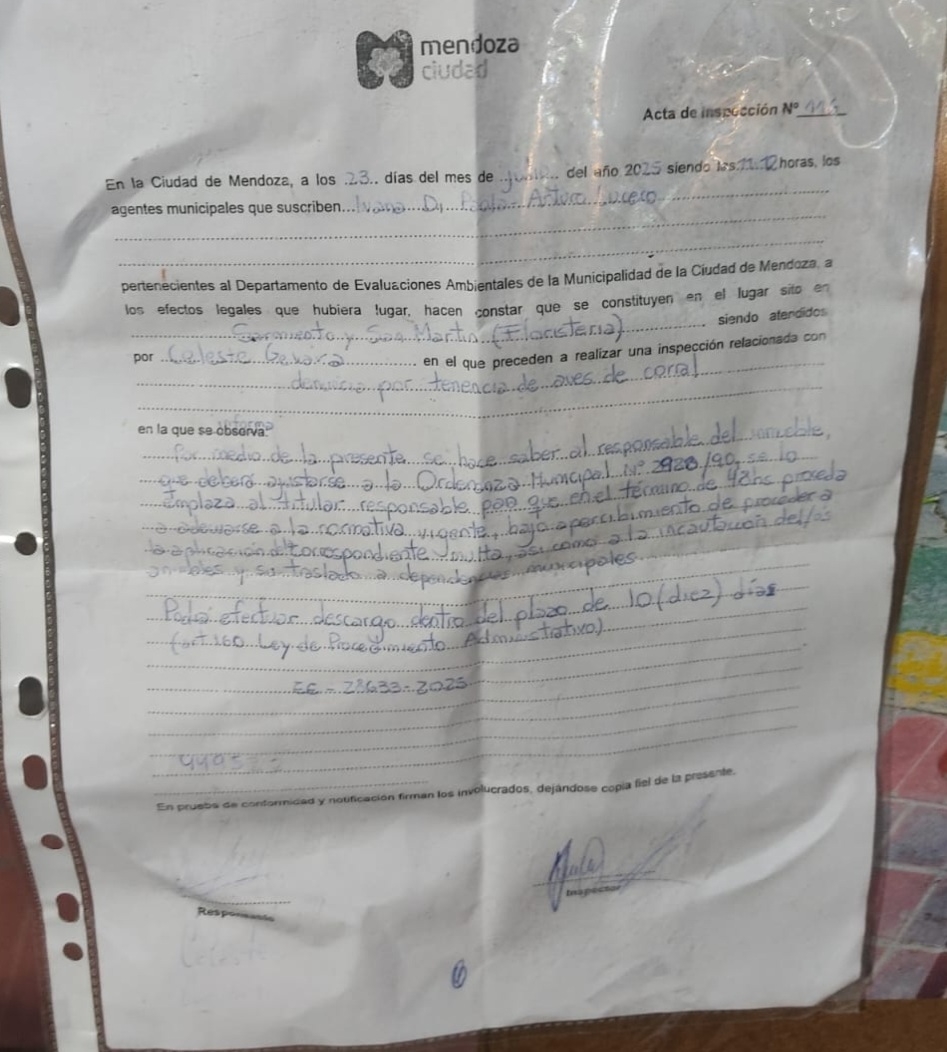 mendoza
ciudad
Acta de inspección Nº
En la Ciudad de Mendoza, a los .23.. días del mes de ..junio.. del año 2025 siendo las 11:12 horas, los
agentes municipales que suscriben...Ivana Di Paola - Arturo Lucero
pertenecientes al Departamento de Evaluaciones Ambientales de la Municipalidad de la Ciudad de Mendoza, a
los efectos legales que hubiera lugar, hacen constar que se constituyen en el lugar sito en
Sarmiento y San Martin (Floristeria) siendo atendidos
por Celeste en el que preceden a realizar una inspección relacionada con
denuncia por tenencia de aves de corral
informa
en la que se observa:
Por medio de la presente se hace saber al responsable del inmueble,
que deberá ajustarse a la Ordenanza Municipal Nº 2928/90, se lo
Emplaza al titular responsable para que en el término de 48hs proceda
a adecuarse a la normativa vigente, bajo apercibimiento de proceder a
la aplicación correspondiente multa, así como a la incautación del/os
animales y su traslado a dependencias municipales.
Podrá efectuar descargo dentro del plazo de 10 (diez) días
(art 160 Ley de Procedimiento Administrativo)
EE - 28633 - 2025
En prueba de conformidad y notificación firman los involucrados, dejándose copia fiel de la presente.
Inspector
Celeste